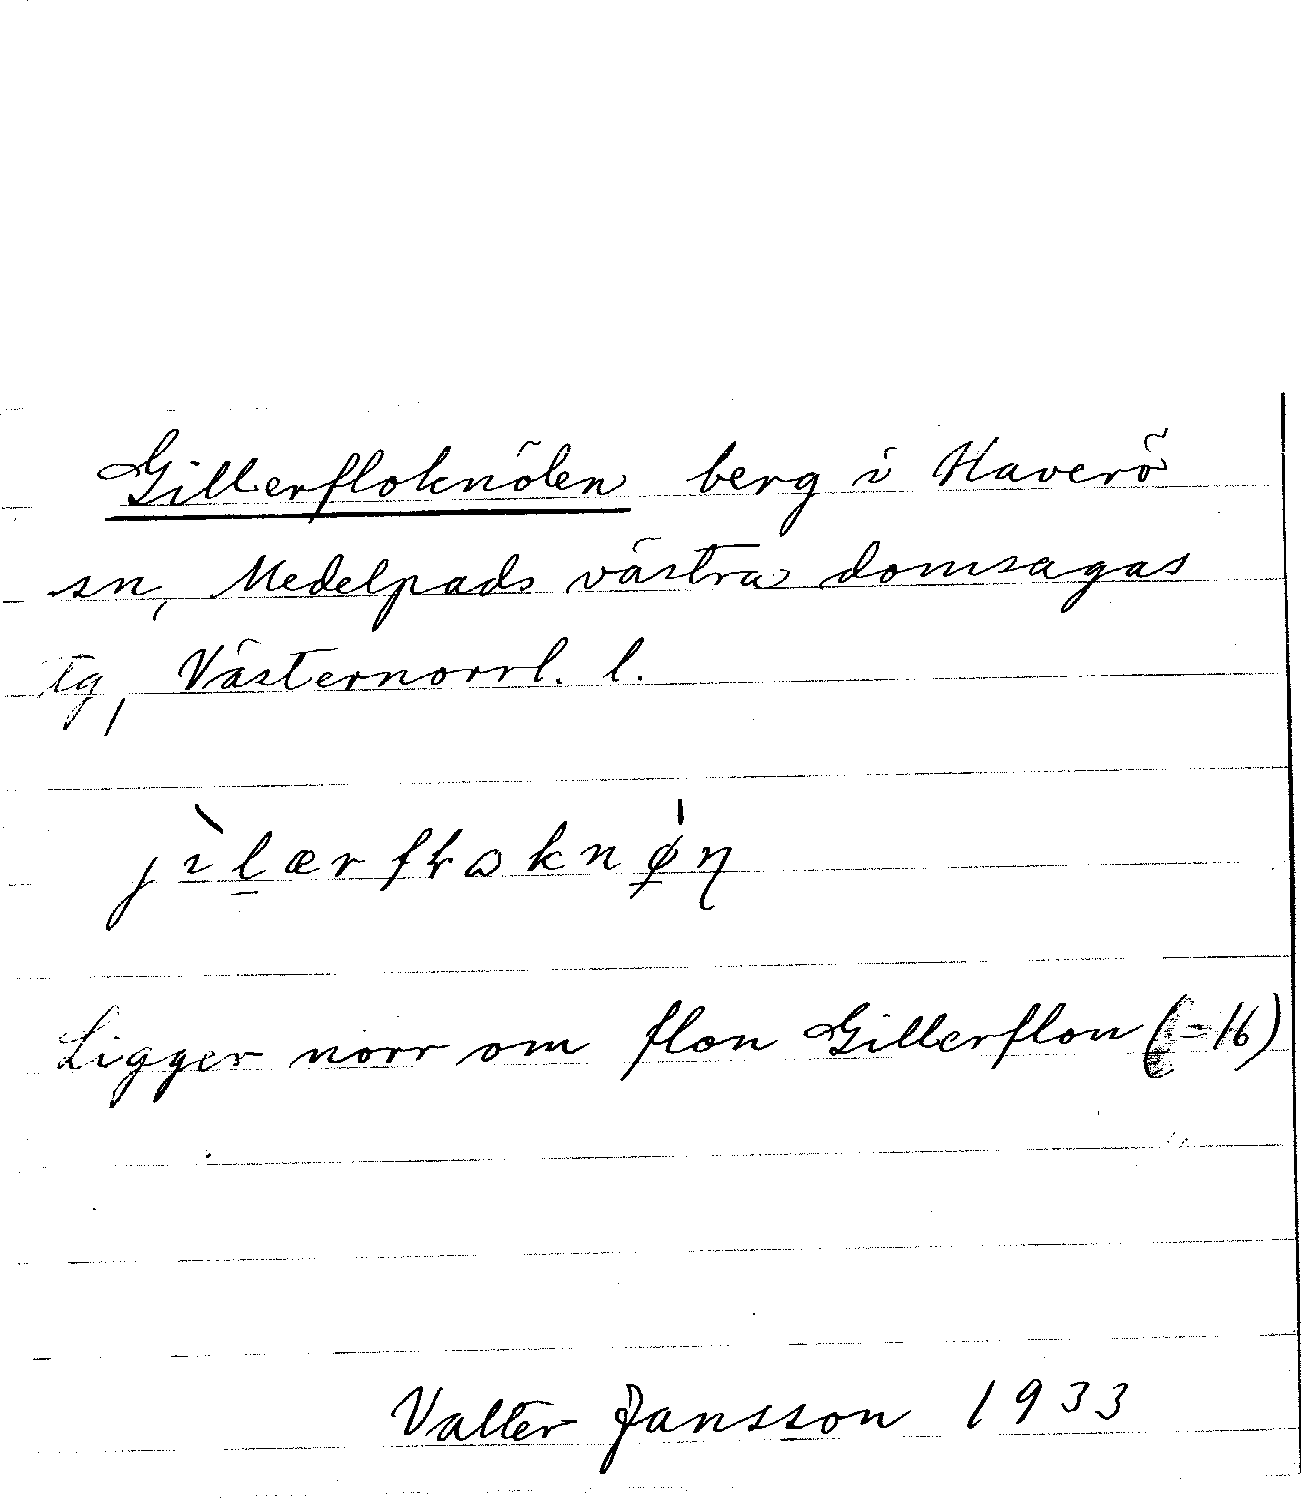 Gillerfloknölen berg i Haverö
sn, Medelpads västra domsagas
tg, Västernorrl. l.
jìlærflɷknǿn
Ligger norr om flon Gillerflon (=16)
Valter Jansson 1933